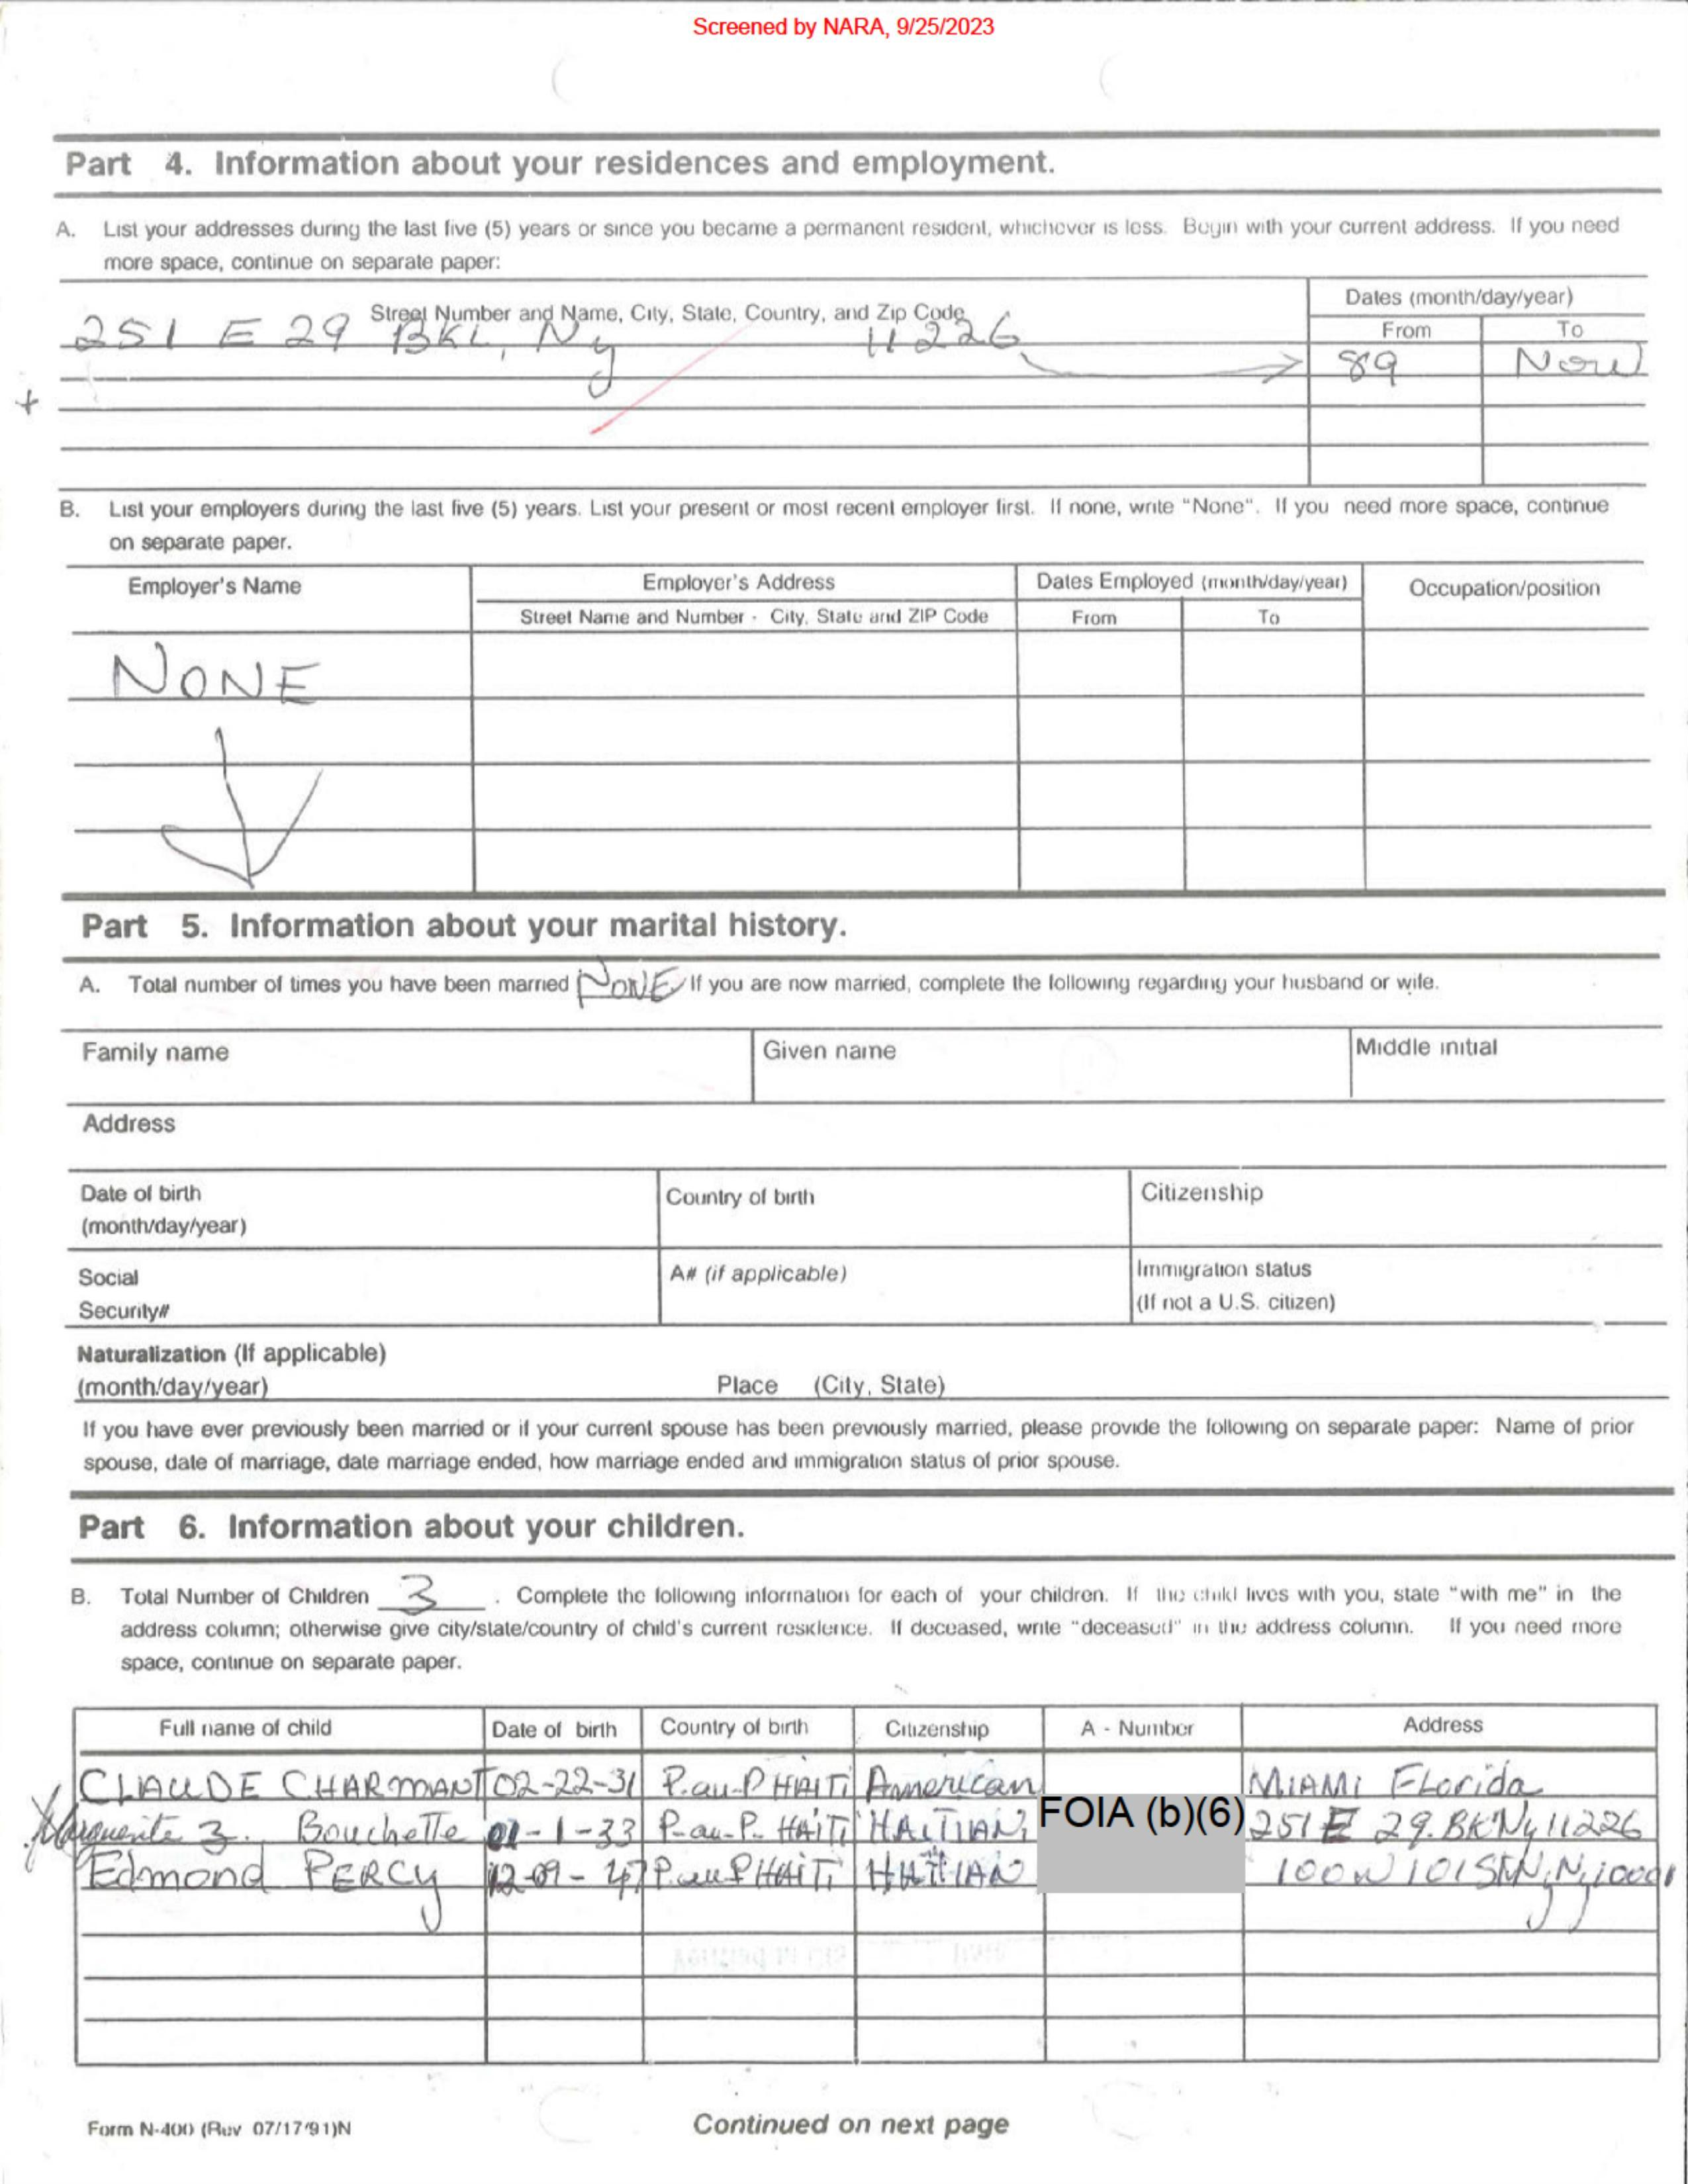 Screened by NARA, 9/25/2023
Part 4. Information about your residences and employment.
A. List your addresses during the last five (5) years or since you became a permanent resident, whichever is less. Begin with your current address. If you need
more space, continue on separate paper:
Street Number and Name, City, State, Country, and Zip Code
Dates (month/day/year)
From To
251 E 29 BKL, Ny 11226 89 Now
+
B. List your employers during the last five (5) years. List your present or most recent employer first. If none, write "None". If you need more space, continue
on separate paper.
Employer's Name Employer's Address Dates Employed (month/day/year) Occupation/position
Street Name and Number - City, State and ZIP Code From To
NONE
Part 5. Information about your marital history.
A. Total number of times you have been married NONE If you are now married, complete the following regarding your husband or wife.
Family name Given name Middle initial
Address
Date of birth
(month/day/year) Country of birth Citizenship
Social
Security# A# (if applicable) Immigration status
(If not a U.S. citizen)
Naturalization (If applicable)
(month/day/year) Place (City, State)
If you have ever previously been married or if your current spouse has been previously married, please provide the following on separate paper: Name of prior
spouse, date of marriage, date marriage ended, how marriage ended and immigration status of prior spouse.
Part 6. Information about your children.
B. Total Number of Children 3 . Complete the following information for each of your children. If the child lives with you, state "with me" in the
address column; otherwise give city/state/country of child's current residence. If deceased, write "deceased" in the address column. If you need more
space, continue on separate paper.
Full name of child Date of birth Country of birth Citizenship A - Number Address
CLAUDE CHARMANT 02-22-31 P.au-P HAITI American MIAMI FLorida
Marguerite 3. Bouchette -1-33 P-au-P. HAITI HAITIAN FOIA (b)(6) 251 E 29. BK Ny 11226
Edmond PERCY 12-09-47 P.au P HAITI HAITIAN 100 W 101 St N.Ny
Form N-400 (Rev 07/17/91)N Continued on next page